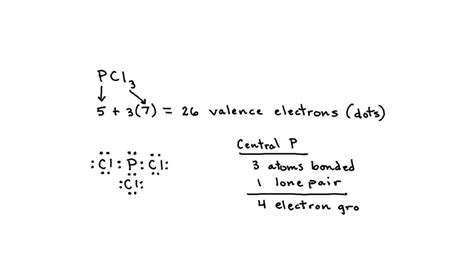 PCl3
5 + 3(7) = 26 valence electrons (dots)
Central P
3 atoms bonded
1 lone pair
4 electron gro
:Cl : P : Cl:
:Cl: